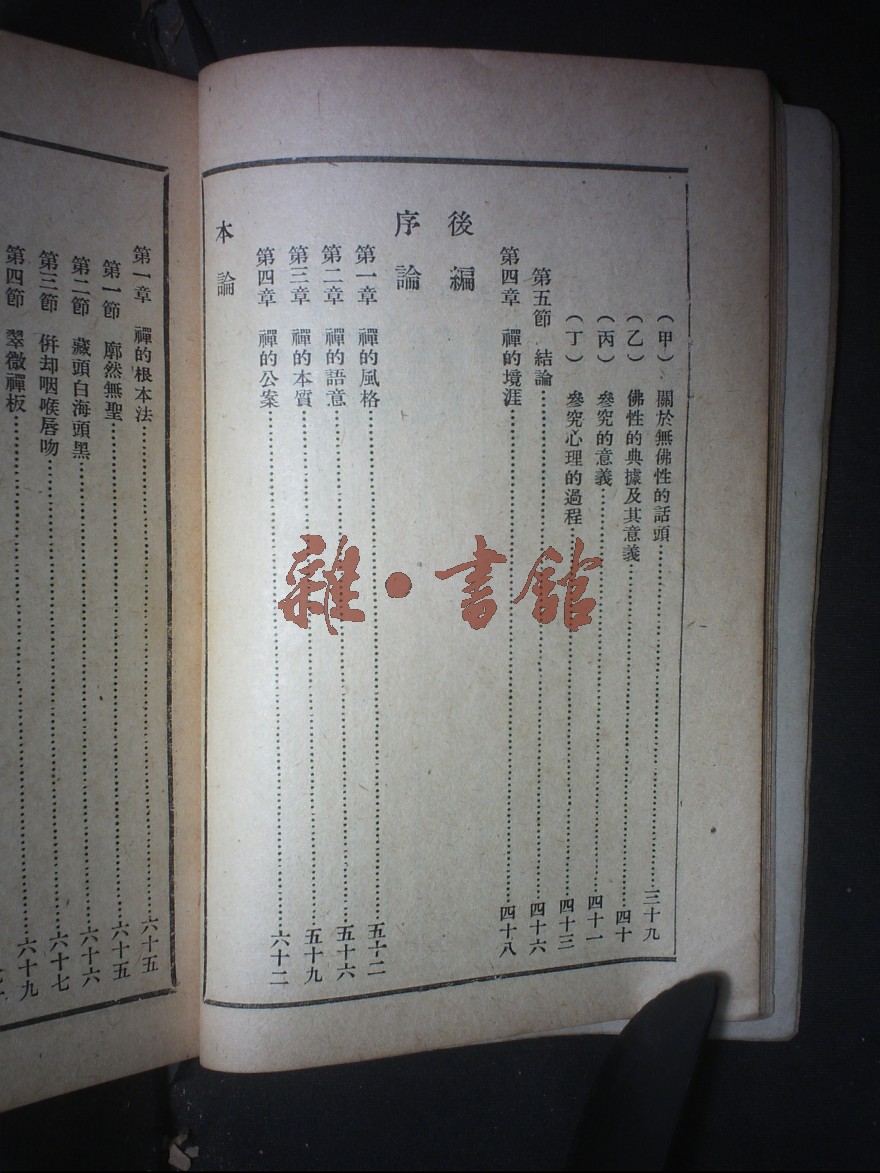 (甲) 關於無佛性的話頭……三十九
(乙) 佛性的典據及其意義……四十
(丙) 參究的意義……四十一
(丁) 參究心理的過程……四十三
第五節 結論……四十六
第四章 禪的境涯……四十八
後編
序論
第一章 禪的風格……五十二
第二章 禪的語意……五十六
第三章 禪的本質……五十九
第四章 禪的公案……六十二
本論
第一章 禪的根本法……六十五
第一節 廓然無聖……六十五
第二節 藏頭白海頭黑……六十六
第三節 併却咽喉唇吻……六十七
第四節 翠微禪板……六十九
雜·書館